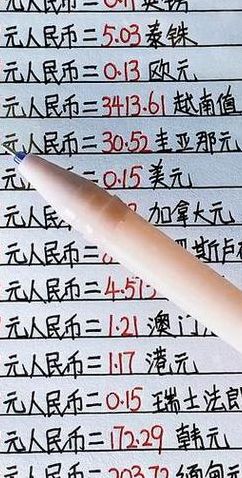 元人民币=5.03泰铢
元人民币=0.13欧元
元人民币=3413.61越南值
元人民币=30.52圭亚那元
元人民币=0.15美元
元人民币 加拿大元
元人民币= 罗斯卢
元人民币=4.51
元人民币=1.21澳门
元人民币=1.17港元
元人民币=0.15瑞士法郎
元人民币=172.29韩元
元人民币=203.72缅甸元